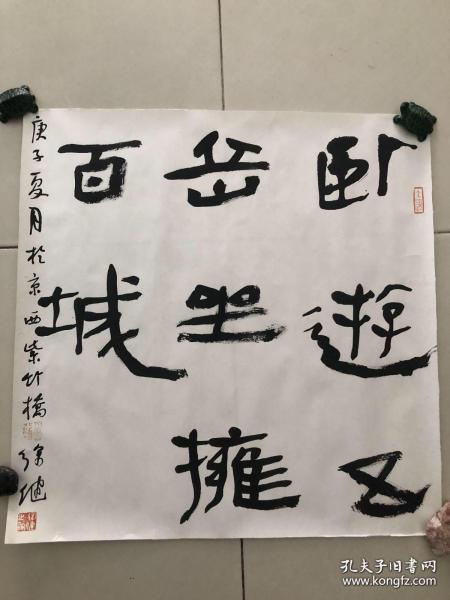 卧遊五
岳坐擁
百城
庚子夏月於京西紫竹橋
孔夫子旧书网
www.kongfz.com